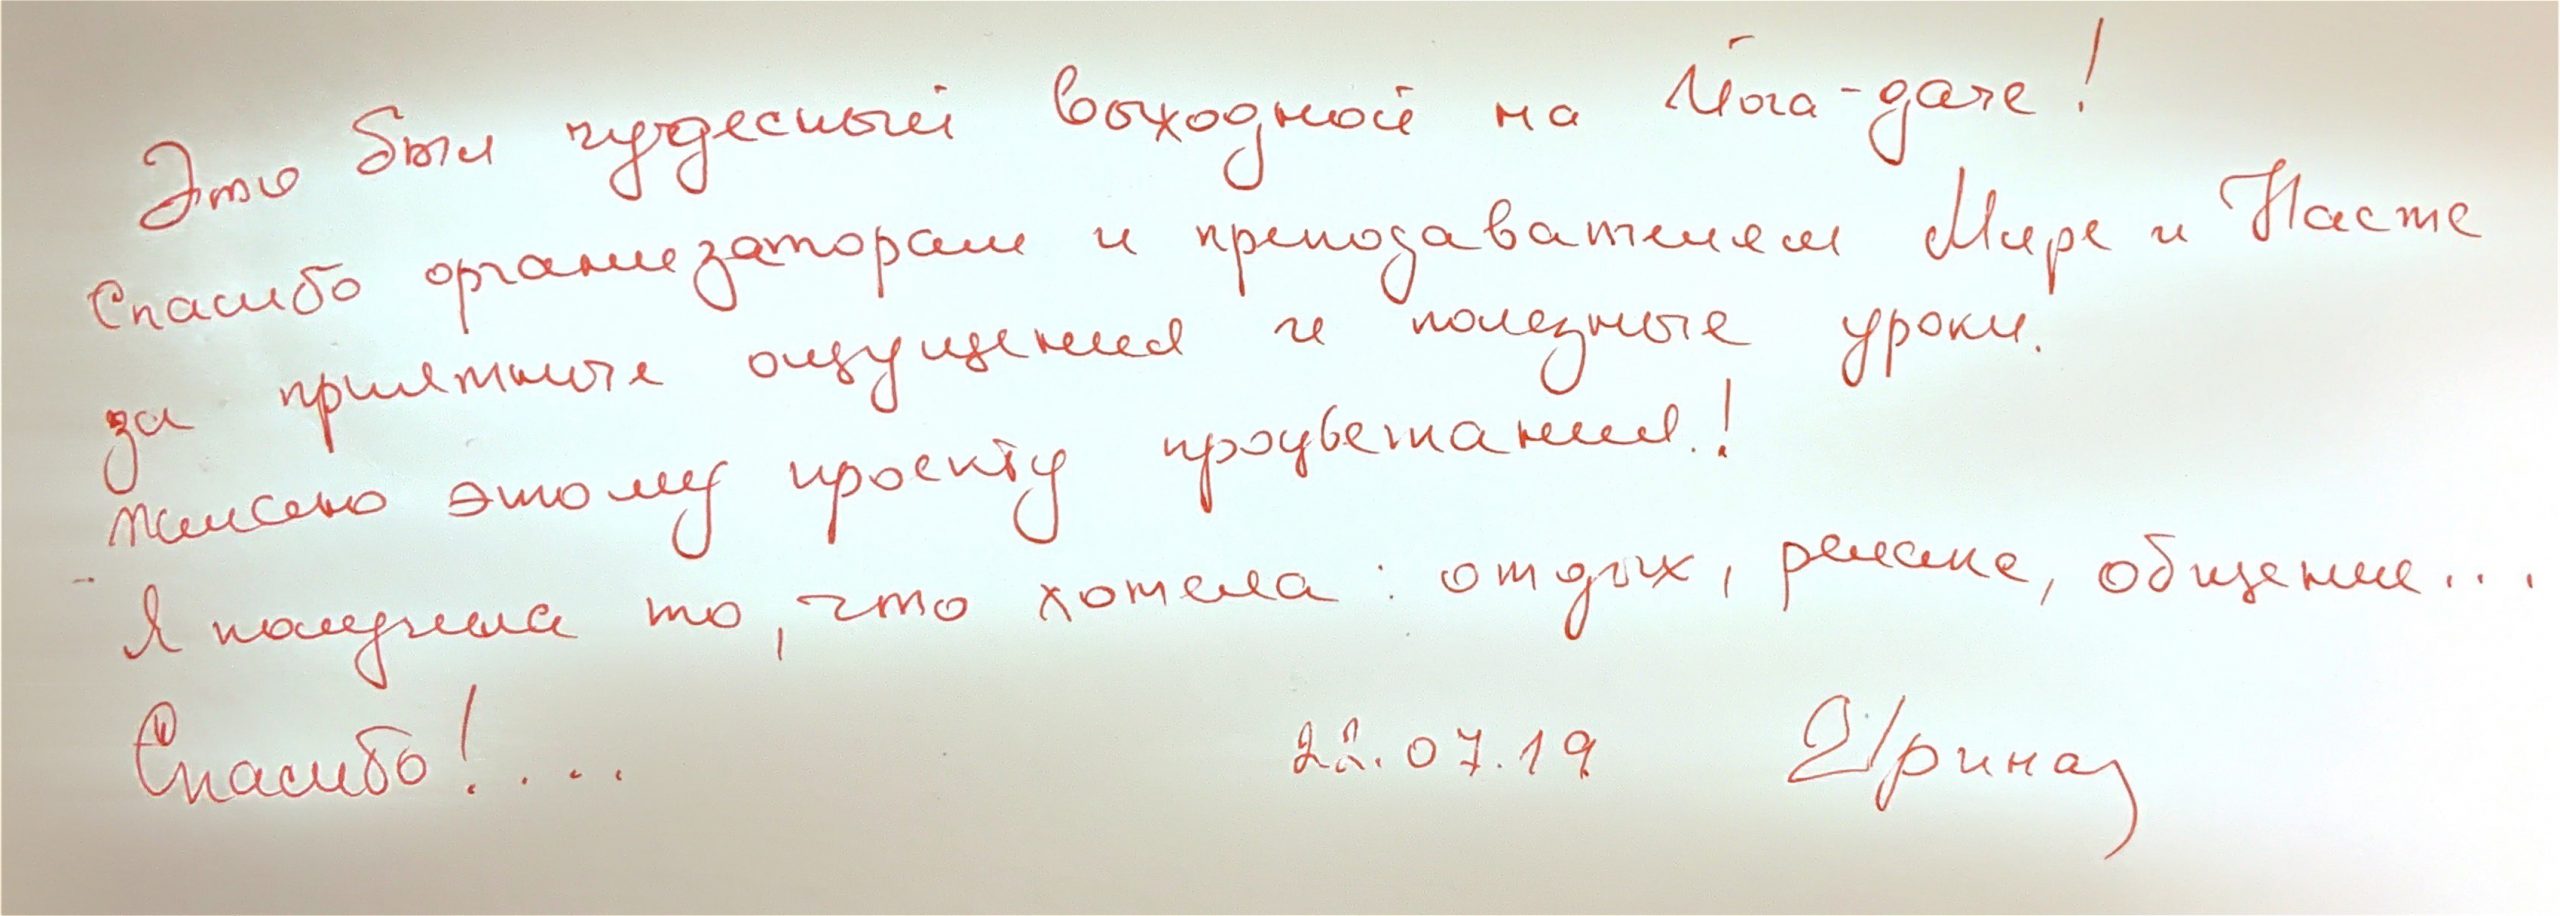 Это был чудесный выходной на Йога-даче!
Спасибо организаторам и преподавателям Мире и Насте
за приятные ощущения и полезные уроки.
Желаю этому проекту процветания!
Я получила то, что хотела: отдых, релакс, общение...
Спасибо!...
22.07.19 Ирина